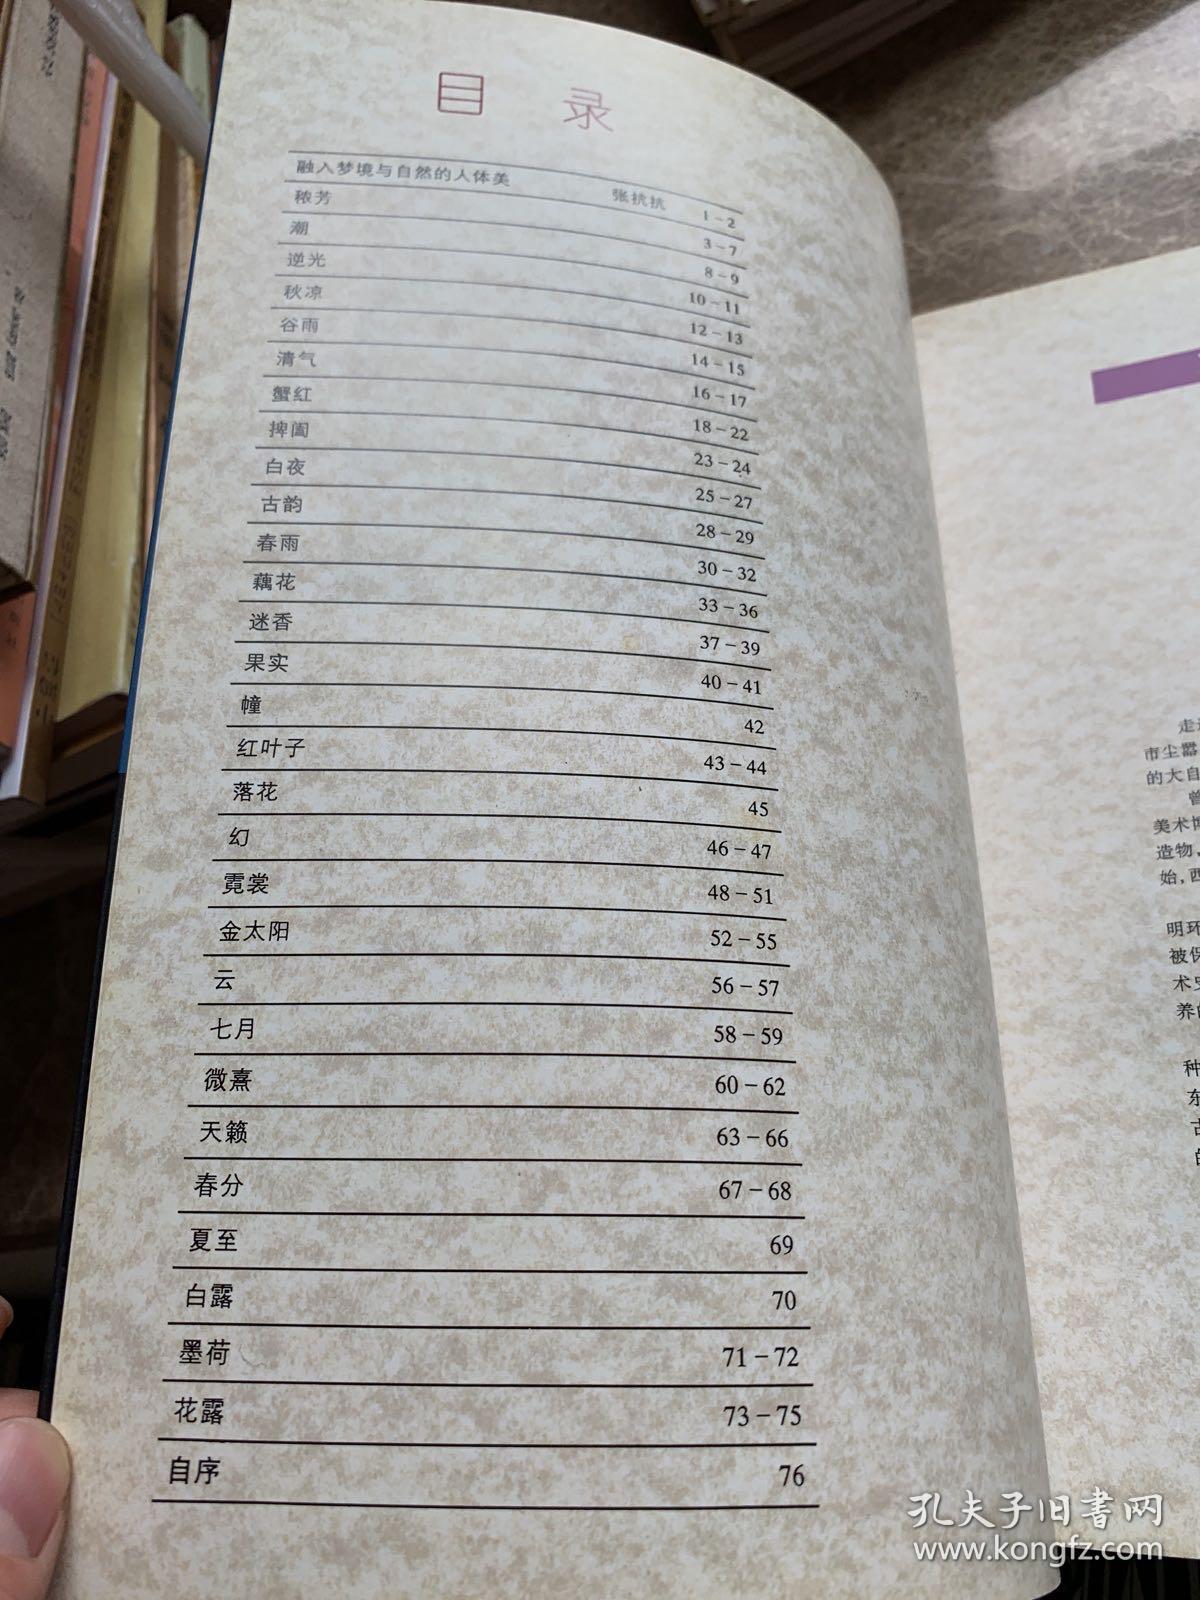 目 录
融入梦境与自然的人体美 张抗抗 1－2
秾芳 3－7
潮 8－9
逆光 10－11
秋凉 12－13
谷雨 14－15
清气 16－17
蟹红 18－22
捭阖 23－24
白夜 25－27
古韵 28－29
春雨 30－32
藕花 33－36
迷香 37－39
果实 40－41
幢 42
红叶子 43－44
落花 45
幻 46－47
霓裳 48－51
金太阳 52－55
云 56－57
七月 58－59
微熹 60－62
天籁 63－66
春分 67－68
夏至 69
白露 70
墨荷 71－72
花露 73－75
自序 76
市尘嚣
的大自
曾
美术博
造物，
始，西
明环
被保
术史
养的
种
东
古
的
孔夫子旧书网
www.kongfz.com